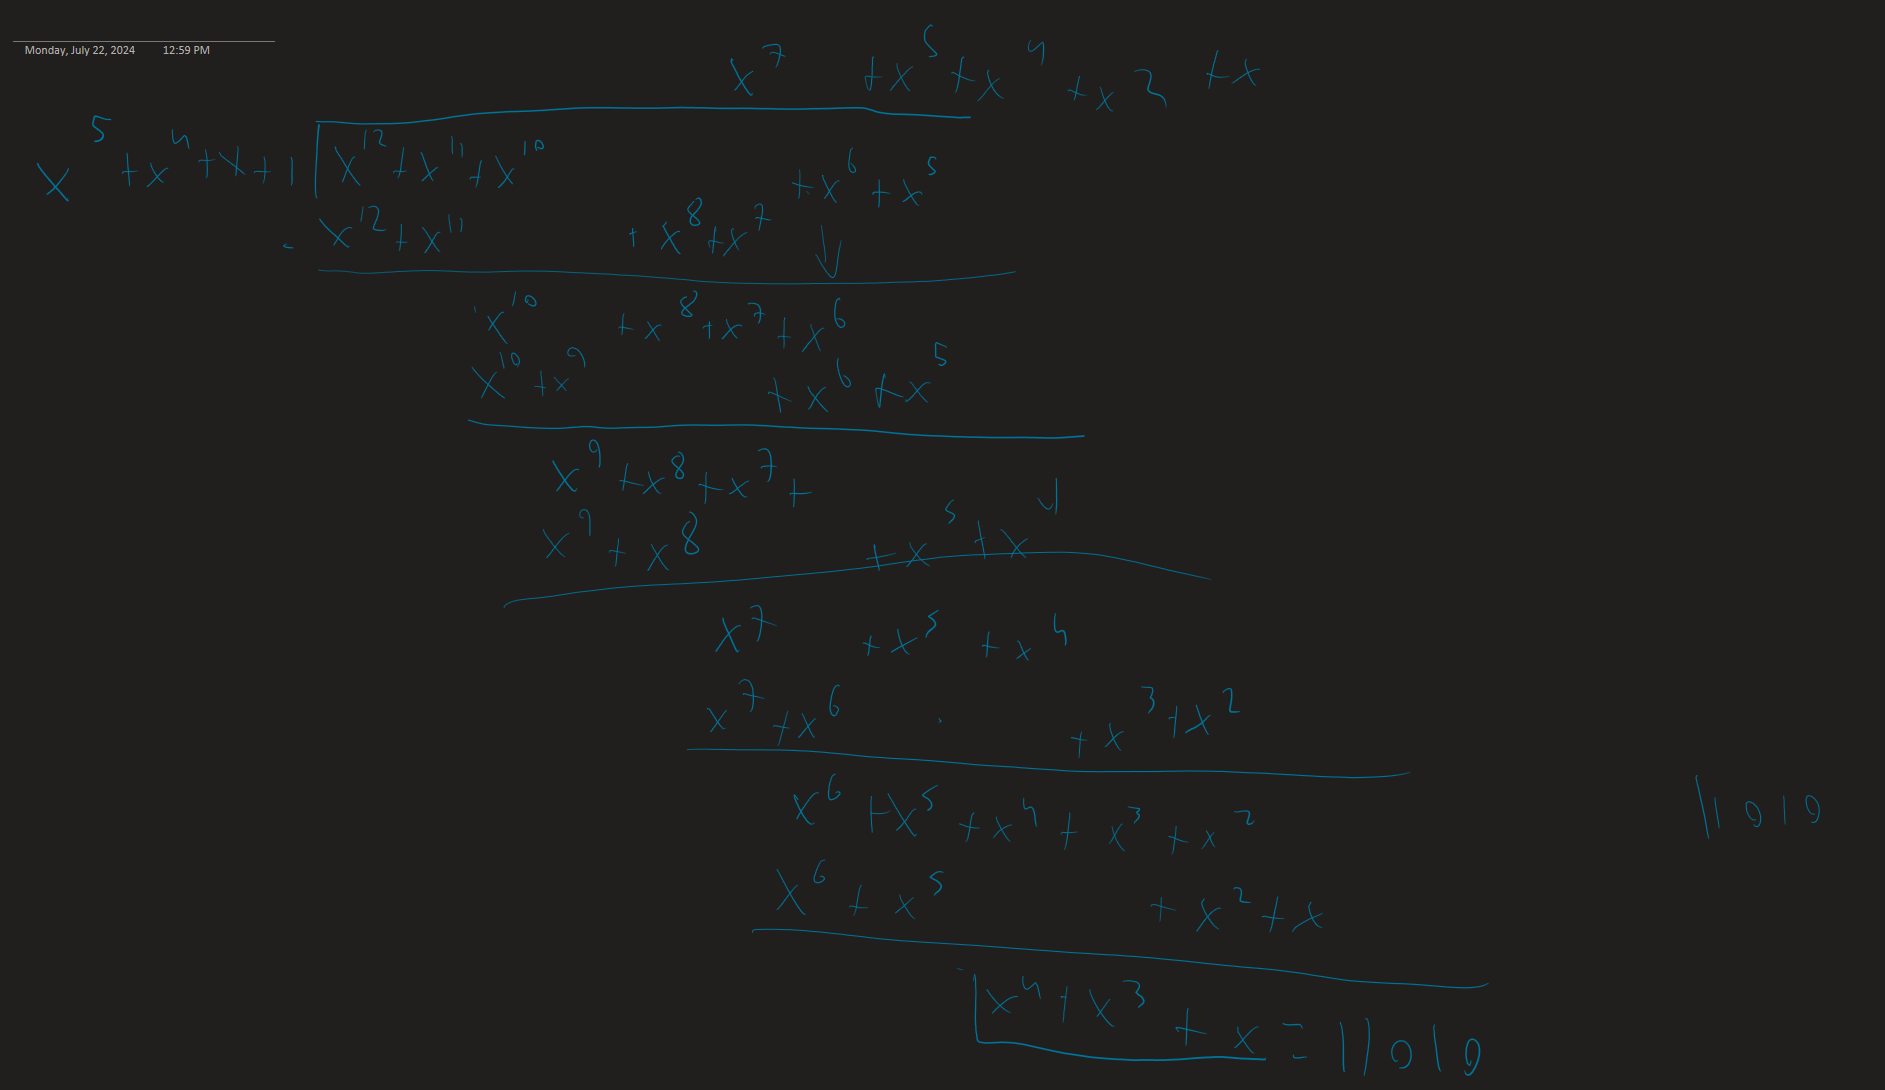 Monday, July 22, 2024 12:59 PM
x^7 + x^5 + x^4 + x^2 + x
x^5 + x^4 + x + 1 | x^12 + x^11 + x^10 + x^6 + x^5
- x^12 + x^11 + x^8 + x^7
x^10 + x^8 + x^7 + x^6
x^10 + x^9 + x^6 + x^5
x^9 + x^8 + x^7 +
x^9 + x^8 + x^5 + x^4
x^7 + x^5 + x^4
x^7 + x^6 + x^3 + x^2
x^6 + x^5 + x^4 + x^3 + x^2
11010
x^6 + x^5 + x^2 + x
x^4 + x^3 + x = 11010